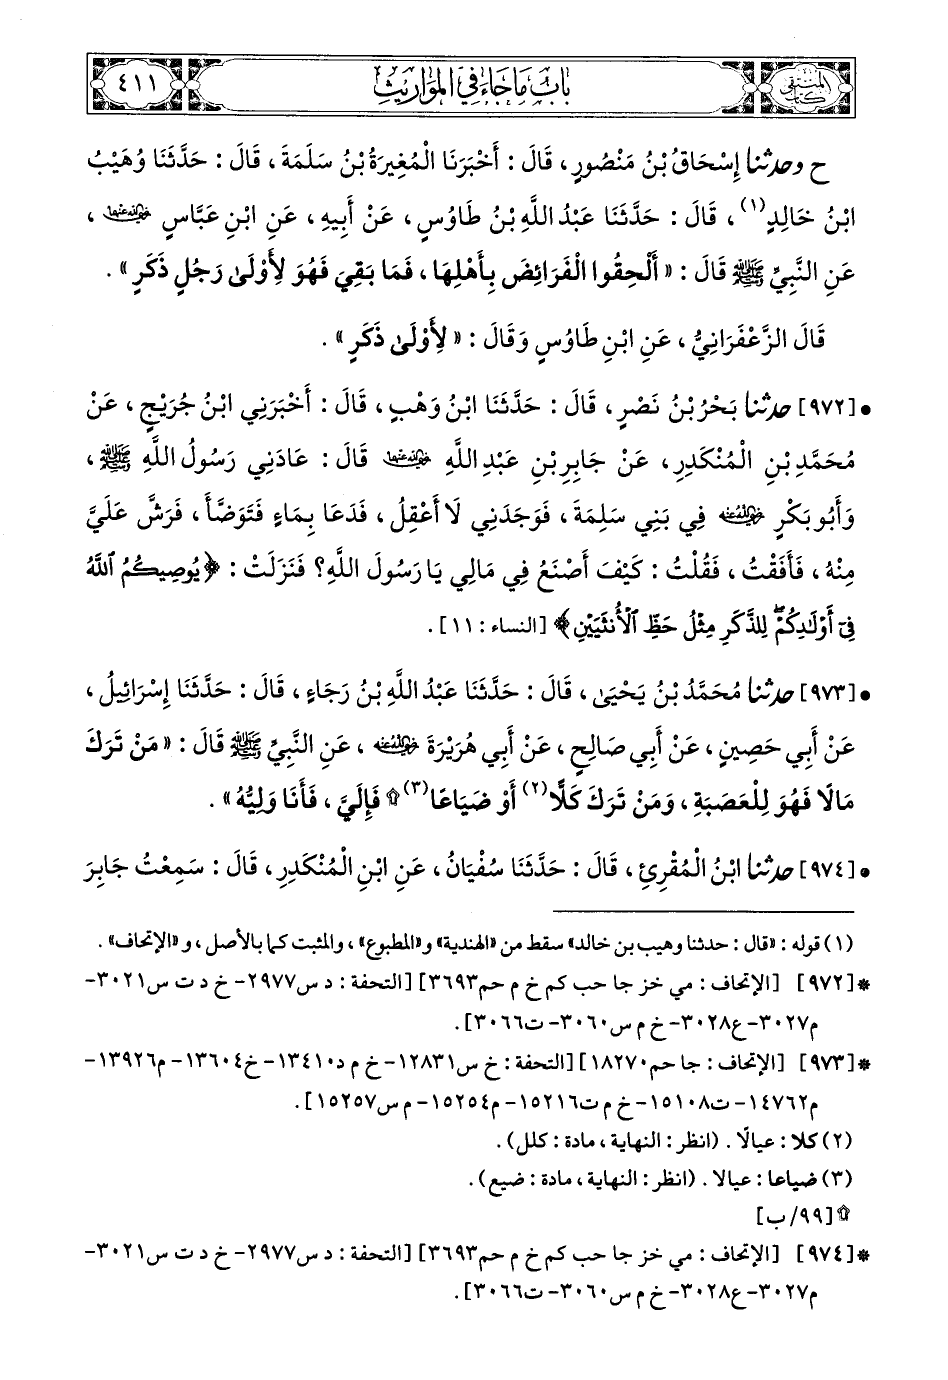 المنتقى كتاب
باب ما جاء في المواريث
٤١١
ح وحدثنا إِسْحَاقُ بْنُ مَنْصُورٍ، قَالَ: أَخْبَرَنَا الْمُغِيرَةُ بْنُ سَلَمَةَ، قَالَ: حَدَّثَنَا وُهَيْبُ
ابْنُ خَالِدٍ(١)، قَالَ: حَدَّثَنَا عَبْدُ اللَّهِ بْنُ طَاوُسٍ، عَنْ أَبِيهِ، عَنِ ابْنِ عَبَّاسٍ رضي الله عنهما،
عَنِ النَّبِيِّ ﷺ قَالَ: «أَلْحِقُوا الْفَرَائِضَ بِأَهْلِهَا، فَمَا بَقِيَ فَهُوَ لِأَوْلَى رَجُلٍ ذَكَرٍ».
قَالَ الزَّعْفَرَانِيُّ، عَنِ ابْنِ طَاوُسٍ وَقَالَ: «لِأَوْلَى ذَكَرٍ».
• [٩٧٢] حدثنا بَحْرُ بْنُ نَصْرٍ، قَالَ: حَدَّثَنَا ابْنُ وَهْبٍ، قَالَ: أَخْبَرَنِي ابْنُ جُرَيْجٍ، عَنْ
مُحَمَّدِ بْنِ الْمُنْكَدِرِ، عَنْ جَابِرِ بْنِ عَبْدِ اللَّهِ رضي الله عنهما قَالَ: عَادَنِي رَسُولُ اللَّهِ ﷺ،
وَأَبُو بَكْرٍ رضي الله عنه فِي بَنِي سَلِمَةَ، فَوَجَدَنِي لَا أَعْقِلُ، فَدَعَا بِمَاءٍ فَتَوَضَّأَ، فَرَشَّ عَلَيَّ
مِنْهُ، فَأَفَقْتُ، فَقُلْتُ: كَيْفَ أَصْنَعُ فِي مَالِي يَا رَسُولَ اللَّهِ؟ فَنَزَلَتْ: ﴿يُوصِيكُمُ ٱللَّهُ
فِىٓ أَوْلَٰدِكُمْ ۖ لِلذَّكَرِ مِثْلُ حَظِّ ٱلْأُنثَيَيْنِ﴾ [النساء: ١١].
• [٩٧٣] حدثنا مُحَمَّدُ بْنُ يَحْيَى، قَالَ: حَدَّثَنَا عَبْدُ اللَّهِ بْنُ رَجَاءٍ، قَالَ: حَدَّثَنَا إِسْرَائِيلُ،
عَنْ أَبِي حَصِينٍ، عَنْ أَبِي صَالِحٍ، عَنْ أَبِي هُرَيْرَةَ رضي الله عنه، عَنِ النَّبِيِّ ﷺ قَالَ: «مَنْ تَرَكَ
مَالًا فَهُوَ لِلْعَصَبَةِ، وَمَنْ تَرَكَ كَلًّا(٢) أَوْ ضَيَاعًا(٣)۩ فَإِلَيَّ، فَأَنَا وَلِيُّهُ».
• [٩٧٤] حدثنا ابْنُ الْمُقْرِئِ، قَالَ: حَدَّثَنَا سُفْيَانُ، عَنِ ابْنِ الْمُنْكَدِرِ، قَالَ: سَمِعْتُ جَابِرَ
(١) قوله: «قال: حدثنا وهيب بن خالد» سقط من «الهندية» و«المطبوع»، والمثبت كما بالأصل، و«الإتحاف».
* [٩٧٢] [الإتحاف: مي خز جا حب كم خ م حم٣٦٩٣] [التحفة: د س٢٩٧٧- خ د ت س٣٠٢١-
م٣٠٢٧- ع٣٠٢٨- خ م س٣٠٦٠- ت٣٠٦٦].
* [٩٧٣] [الإتحاف: جا حم١٨٢٧٠] [التحفة: خ س١٢٨٣١- خ م د١٣٤١٠- خ١٣٦٠٤- م١٣٩٢٦-
م١٤٧٦٢- ت١٥١٠٨- خ م ت١٥٢١٦- م١٥٢٥٤- م س١٥٢٥٧].
(٢) كلا: عيالًا. (انظر: النهاية، مادة: كلل).
(٣) ضياعا: عيالا. (انظر: النهاية، مادة: ضيع).
۩ [٩٩/ب]
* [٩٧٤] [الإتحاف: مي خز جا حب كم خ م حم٣٦٩٣] [التحفة: د س٢٩٧٧- خ د ت س٣٠٢١-
م٣٠٢٧- ع٣٠٢٨- خ م س٣٠٦٠- ت٣٠٦٦].